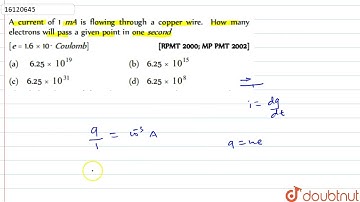 16120645
A current of 1 mA is flowing through a copper wire. How many
electrons will pass a given point in one second
[e = 1.6 × 10⁻ Coulomb] [RPMT 2000; MP PMT 2002]
(a) 6.25 × 10¹⁹ (b) 6.25 × 10¹⁵
(c) 6.25 × 10³¹ (d) 6.25 × 10⁸
i = dq/dt
q/1 = 10⁻³ A
q = ne
doubtnut